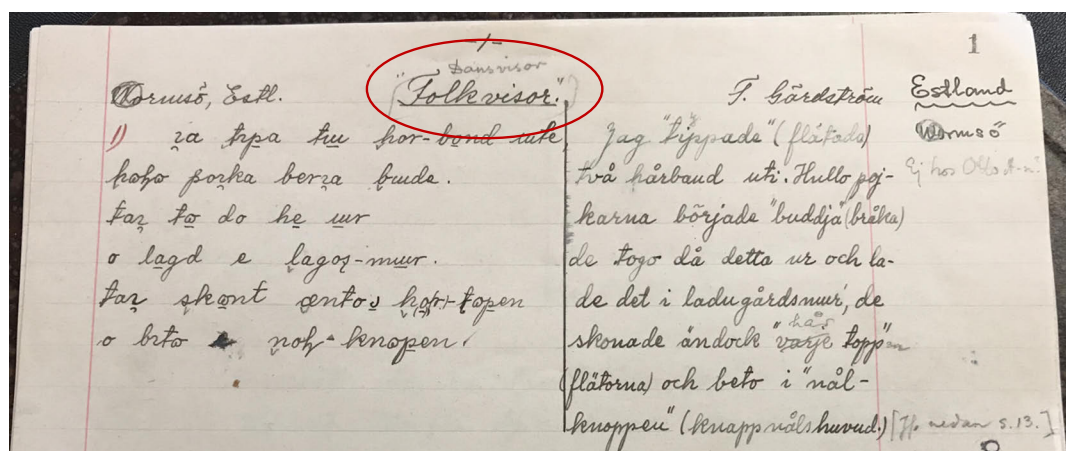 -1-
1
Dansvisor
Wormsö, Estl.
("Folkvisor.")
F. Gårdström
Estland
Wormsö
Ej hos
1) ʒa tɩpa tɯ hor-bond ute
hoho porka berʒa bude.
taʒ to do he ur
o lagd e lagoʒ-mur.
taʒ skont ento hor-topen
o bɩto noh-knopen.
Jag "tippade" (flätade)
två hårband uti. Hullo poj-
karna började "buddja" (bråka)
de togo då detta ur och la-
de det i ladugårdsmur, de
hår
skonade ändock "varje topp"en
(flätorna) och beto i "nål-
knoppen" (knappnålshuvud.) [Jfr nedan s. 13.]